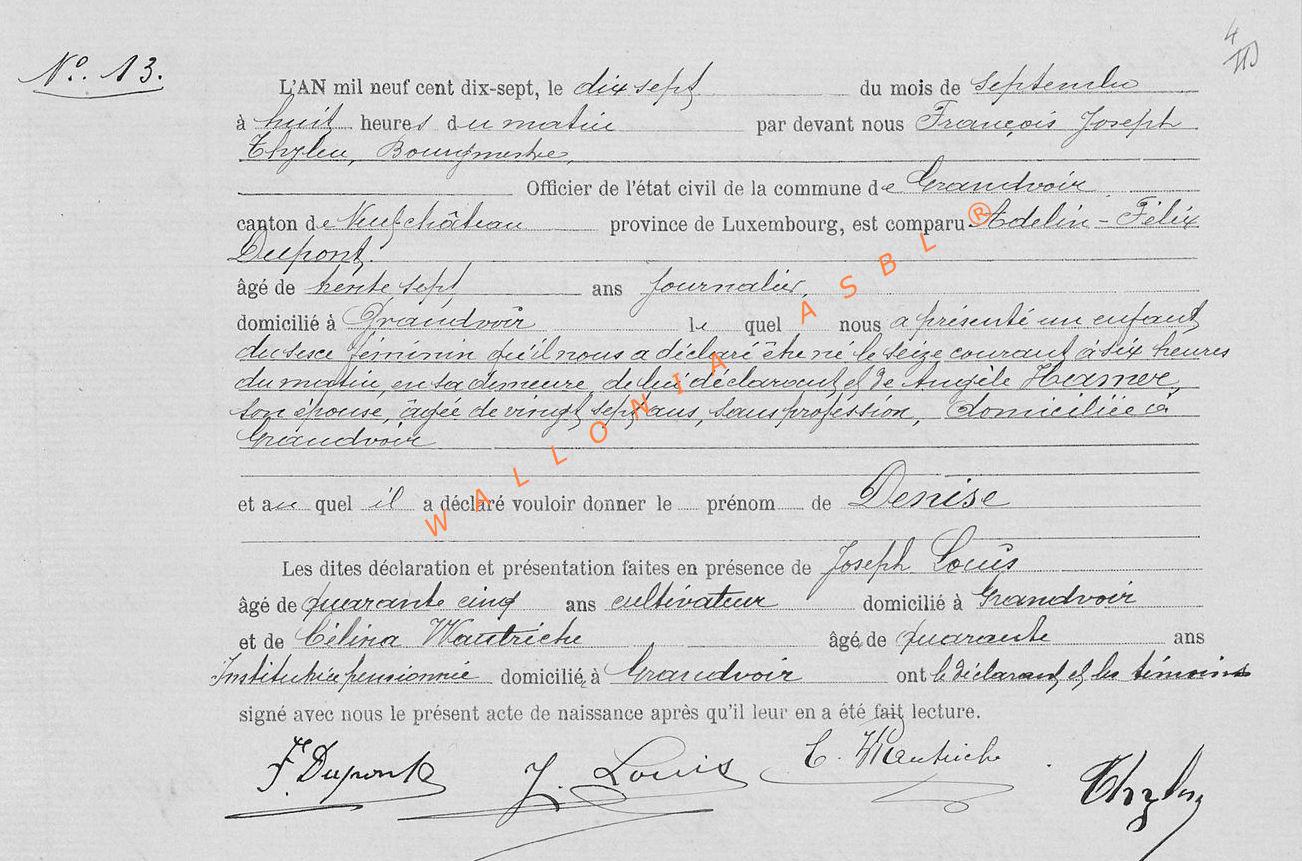 No. 13.
L'AN mil neuf cent dix-sept, le dix sept du mois de septembre
à huit heures du matin par devant nous François Joseph
Bourgmestre,
Officier de l'état civil de la commune de Grandvoir
canton de Neufchâteau province de Luxembourg, est comparu Adelin-Félix
Dupont.
âgé de trente sept ans journalier,
domicilié à Grandvoir le quel nous a présenté un enfant
du sexe féminin qu'il nous a déclaré être né le seize courant à six heures
du matin, en sa demeure, de lui déclarant et de Angèle
son épouse, âgée de vingt sept ans, sans profession, domiciliée à
Grandvoir
et au quel il a déclaré vouloir donner le prénom de Denise
Les dites déclaration et présentation faites en présence de Joseph Louis
âgé de quarante cinq ans cultivateur domicilié à Grandvoir
et de Célina Wautriche âgé de quarante ans
Institutrice pensionnée domicilié à Grandvoir ont le déclarant et les témoins
signé avec nous le présent acte de naissance après qu'il leur en a été fait lecture.
F. Dupont J. Louis C. Wautriche
WALLONIA ASBL ®